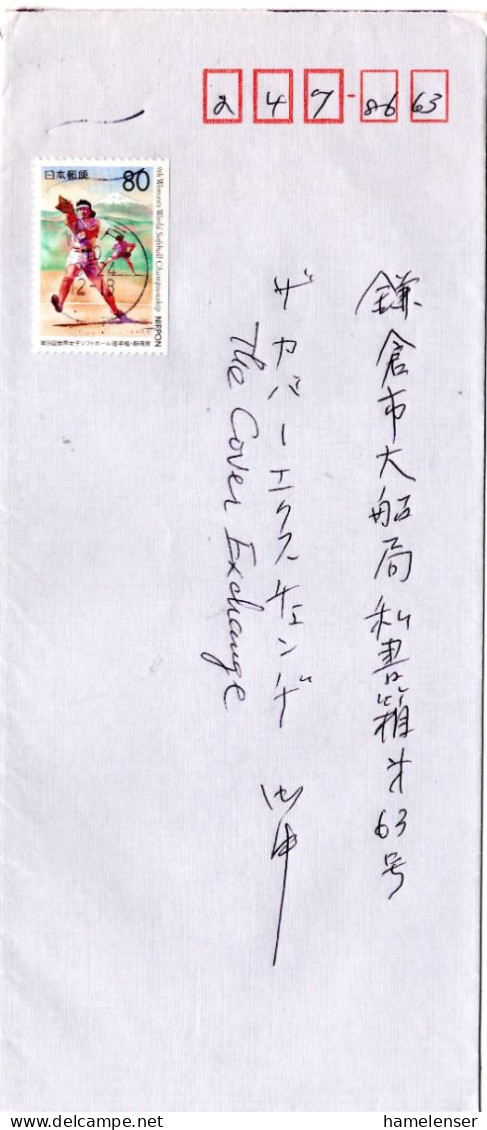 247-8663
日本郵便 80
9th Women's World Softball Championship NIPPON
第9回世界女子ソフトボール選手権・静岡県
24
12-18
鎌倉市大船局私書箱第63号
ザ カバーエクスチェンヂ 御中
The Cover Exchange
www.delcampe.net
hamelenser